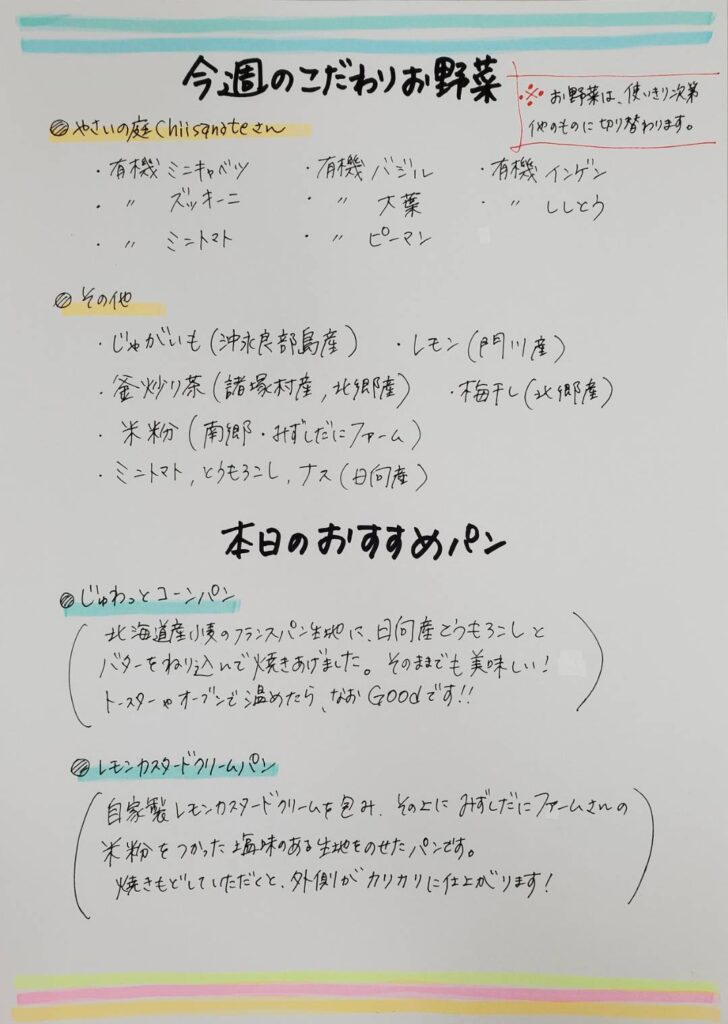 今週のこだわりお野菜
※お野菜は、使いきり次第
他のものに切り替わります。
やさいの庭Chiisanateさん
・有機 ミニキャベツ ・有機 バジル ・有機 インゲン
・〃 ズッキーニ ・〃 大葉 ・〃 ししとう
・〃 ミニトマト ・〃 ピーマン
その他
・じゃがいも(沖永良部島産) ・レモン(門川産)
・釜炒り茶(諸塚村産,北郷産) ・梅干し(北郷産)
・米粉(南郷・みずしだにファーム)
・ミニトマト,とうもろこし,ナス(日向産)
本日のおすすめパン
じゅわっとコーンパン
(北海道産小麦のフランスパン生地に、日向産とうもろこしと
バターをねり込んで焼きあげました。そのままでも美味しい!
トースターやオーブンで温めたら、なおGoodです!!)
レモンカスタードクリームパン
(自家製レモンカスタードクリームを包み、その上にみずしだにファームさんの
米粉をつかった塩味のある生地をのせたパンです。
焼きもどしていただくと、外側がカリカリに仕上がります!)